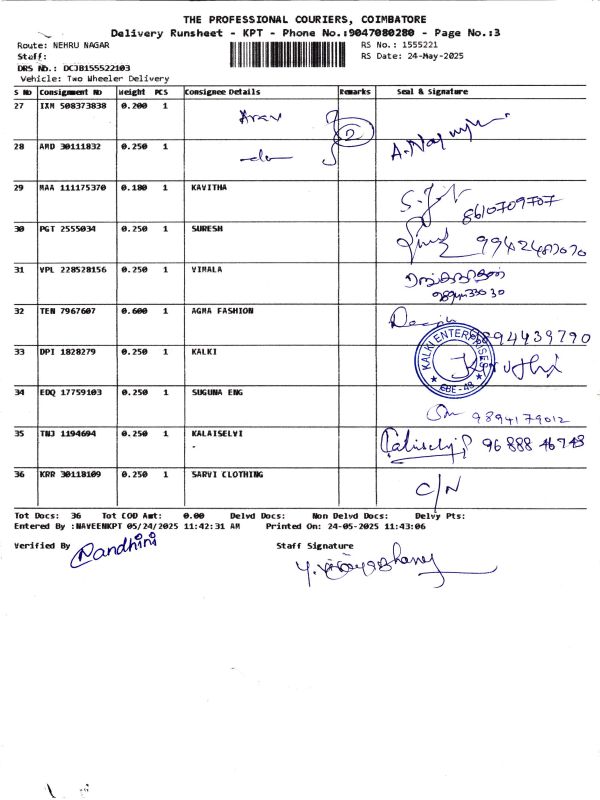 THE PROFESSIONAL COURIERS, COIMBATORE
Delivery Runsheet - KPT - Phone No.:9047080280 - Page No.:3
Route: NEHRU NAGAR RS No.: 1555221
Staff: RS Date: 24-May-2025
DRS No.: DCJB155522103
Vehicle: Two Wheeler Delivery
S No Consignment No Weight PCS Consignee Details Remarks Seal & Signature
27 IXM 508373838 0.200 1
28 AMD 30111832 0.250 1
29 MAA 111175370 0.180 1 KAVITHA 8610709707
30 PGT 2555034 0.250 1 SURESH
31 VPL 228528156 0.250 1 VIMALA
32 TEN 7967607 0.600 1 AGMA FASHION 9894439790
33 DPI 1828279 0.250 1 KALKI KALKI ENTERPRISES CBE-48
34 EDQ 17759103 0.250 1 SUGUNA ENG 9894179012
35 TNJ 1194694 0.250 1 KALAISELVI 96 888 46743
-
36 KRR 30118109 0.250 1 SARVI CLOTHING C/N
Tot Docs: 36 Tot COD Amt: 0.00 Delvd Docs: Non Delvd Docs: Delvy Pts:
Entered By :NAVEENKPT 05/24/2025 11:42:31 AM Printed On: 24-05-2025 11:43:06
Verified By Nandhini Staff Signature